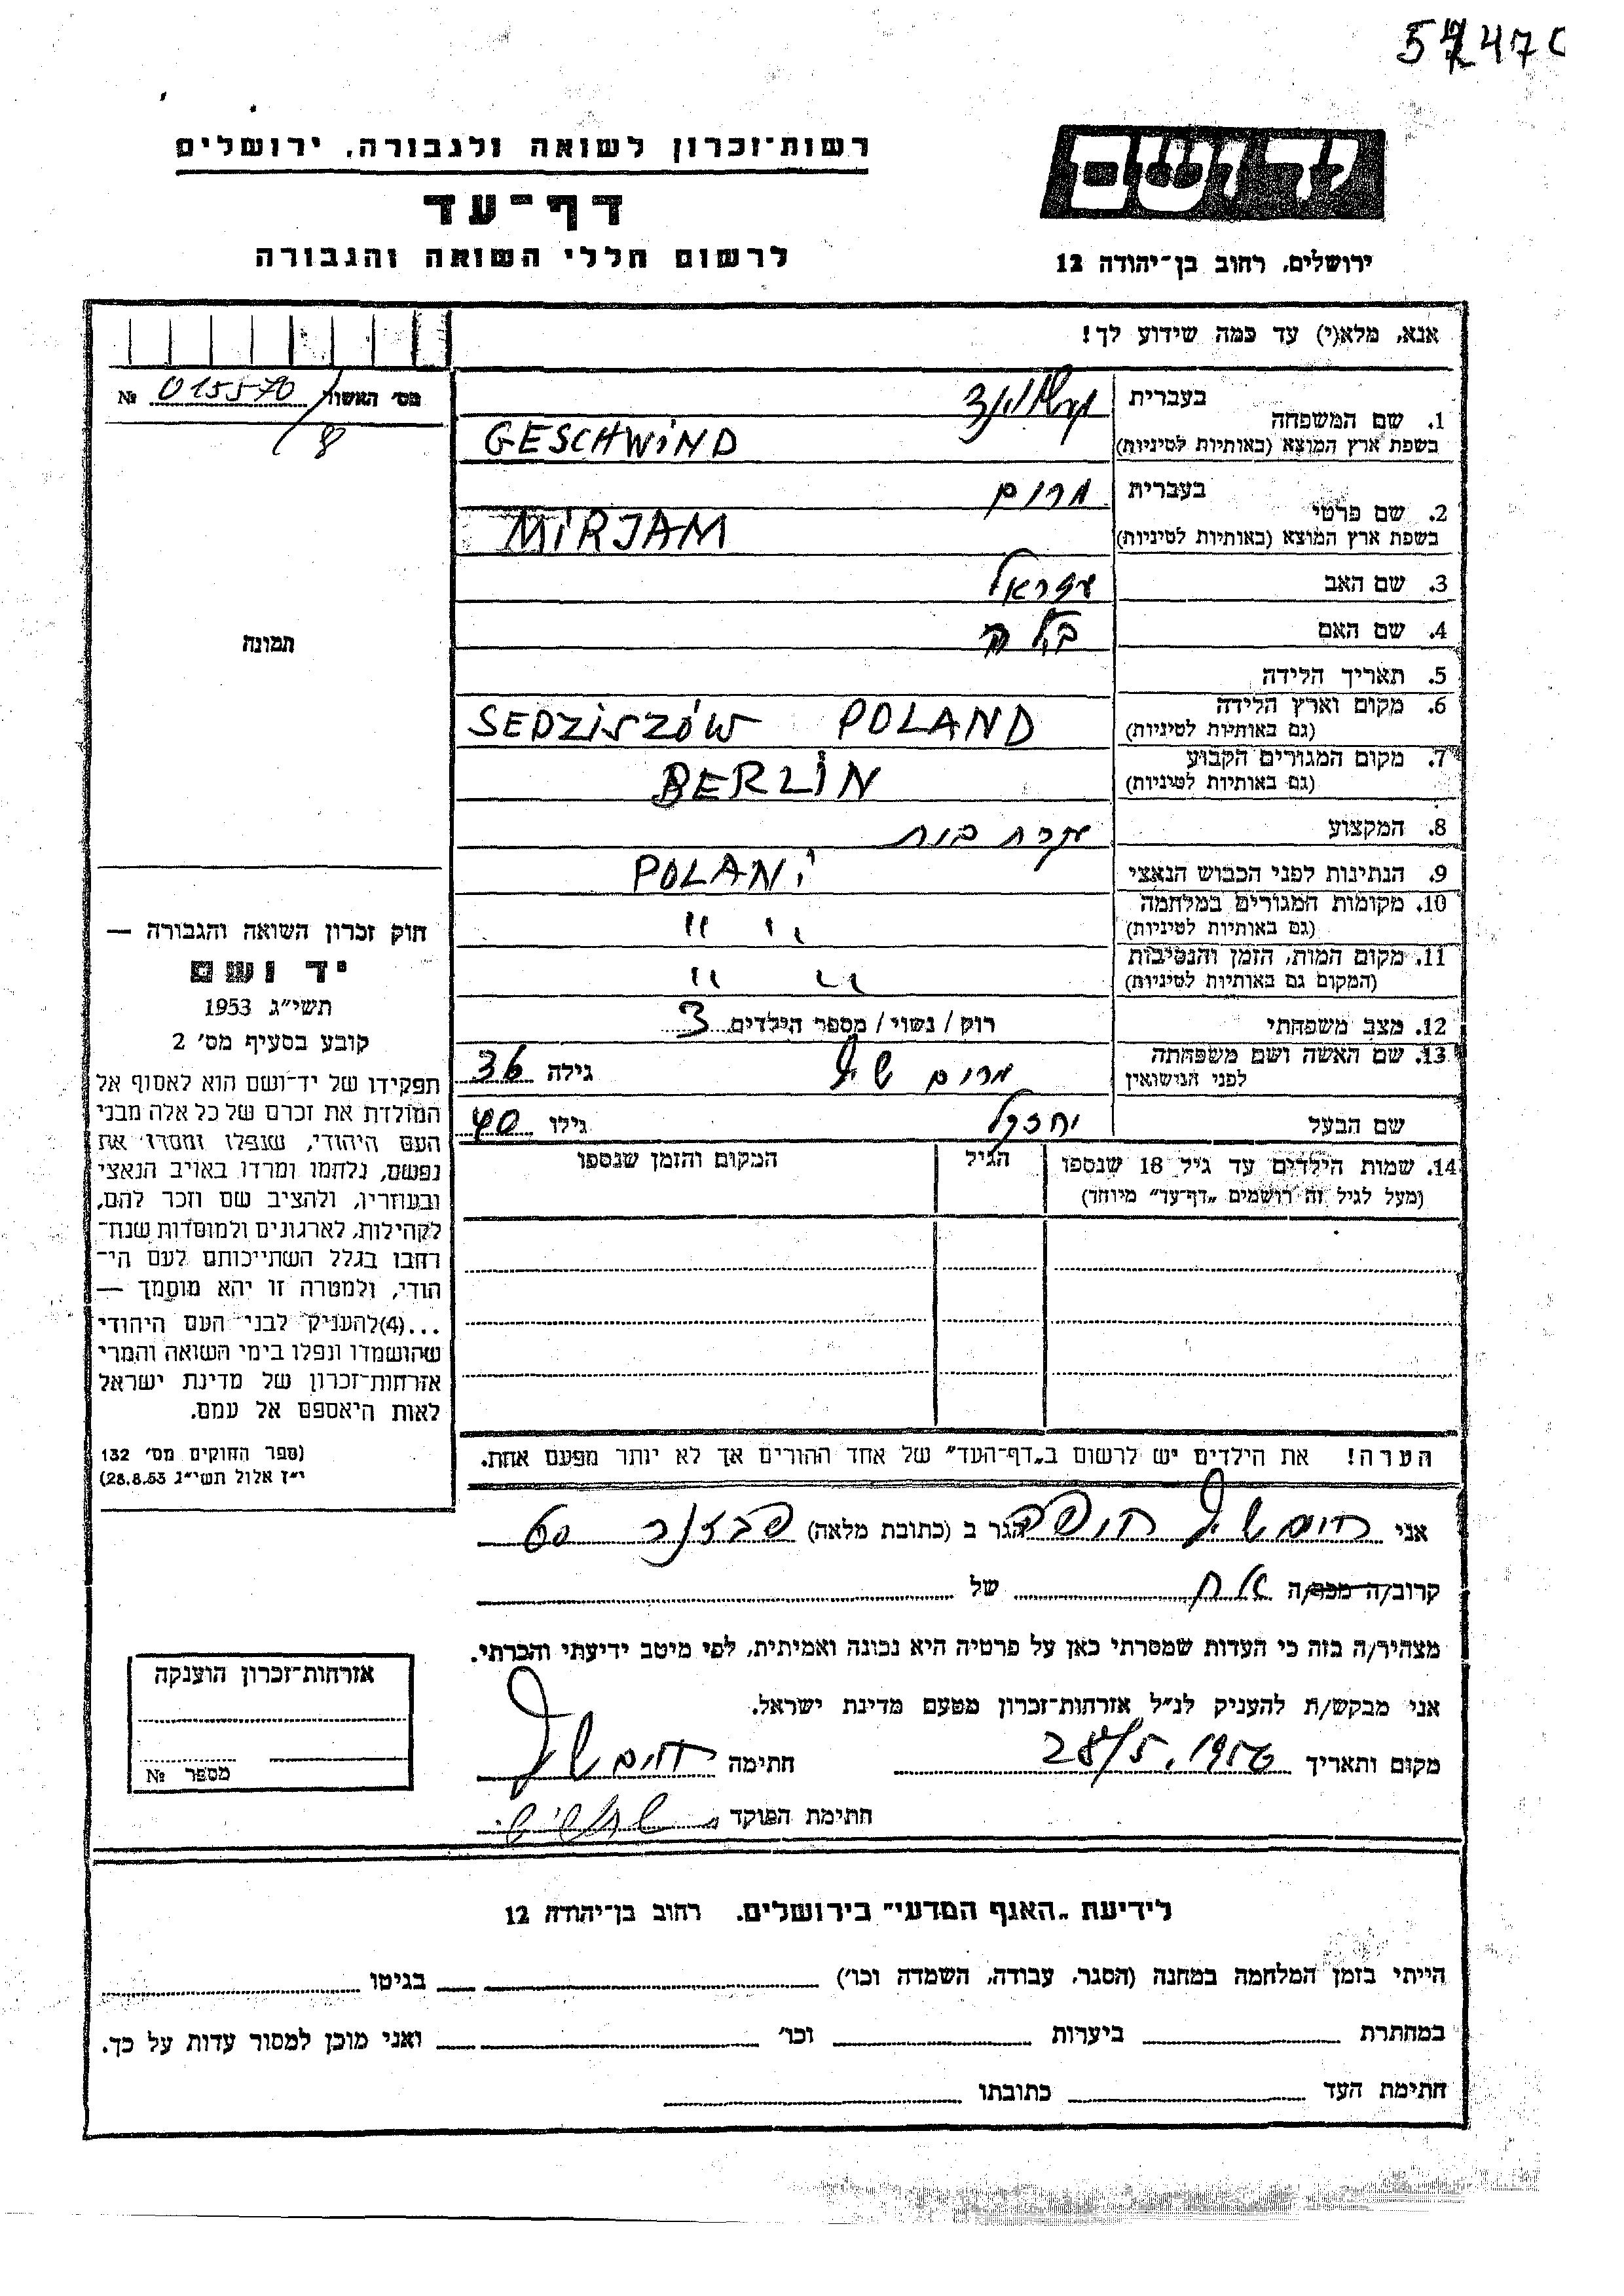 רשות־זכרון לשואה ולגבורה, ירושלים
דף־עד
לרשום חללי השואה והגבורה
יד ושם
ירושלים, רחוב בן־יהודה 12
אנא, מלא(י) עד כמה שידוע לך!
מס׳ האשור 015570 №
8
1. שם המשפחה
בעברית
בשפת ארץ המוצא (באותיות לטיניות) GESCHWIND
2. שם פרטי
בעברית מרים
בשפת ארץ המוצא (באותיות לטיניות) MIRJAM
3. שם האב
4. שם האם
5. תאריך הלידה
6. מקום וארץ הלידה
(גם באותיות לטיניות) SEDZISZÓW POLAND
7. מקום המגורים הקבוע
(גם באותיות לטיניות) BERLIN
8. המקצוע עקרת בית
9. הנתינות לפני הכבוש הנאצי POLANI
10. מקומות המגורים במלחמה
(גם באותיות לטיניות) " "
11. מקום המות, הזמן והנסיבות
(המקום גם באותיות לטיניות) " "
12. מצב משפחתי רוק / נשוי / מספר הילדים 3
13. שם האשה ושם משפחתה
לפני הנישואין מרים גילה 36
שם הבעל יחזקל גילו 40
14. שמות הילדים עד גיל 18 שנספו
(מעל לגיל זה רושמים „דף־עד” מיוחד)
הגיל
המקום והזמן שנספו
הערה! את הילדים יש לרשום ב„דף־העד” של אחד ההורים אך לא יותר מפעם אחת.
תמונה
חוק זכרון השואה והגבורה —
יד ושם
תשי״ג 1953
קובע בסעיף מס׳ 2
תפקידו של יד־ושם הוא לאסוף אל
המולדת את זכרם של כל אלה מבני
העם היהודי, שנפלו ומסרו את
נפשם, נלחמו ומרדו באויב הנאצי
ובעוזריו, ולהציב שם וזכר להם,
לקהילות, לארגונים ולמוסדות שנח־
רחבו בגלל השתייכותם לעם הי־
הודי, ולמטרה זו יהא מוסמך —
...(4)להעניק לבני העם היהודי
שהושמדו ונפלו בימי השואה והמרי
אזרחות־זכרון של מדינת ישראל
לאות היאספם אל עמם.
(ספר החוקים מס׳ 132
י״ז אלול תשי״ג 28.8.53)
אני הגר ב (כתובת מלאה) 60
קרוב/ה מכר/ה של
מצהיר/ה בזה כי העדות שמסרתי כאן על פרטיה היא נכונה ואמיתית, לפי מיטב ידיעתי והכרתי.
אני מבקש/ת להעניק לנ״ל אזרחות־זכרון מטעם מדינת ישראל.
מקום ותאריך 28/5.1956 חתימה
חתימת הפוקד
אזרחות־זכרון הוענקה
מספר №
לידיעת „האגף המדעי” בירושלים. רחוב בן־יהודה 12
הייתי בזמן המלחמה במחנה (הסגר, עבודה, השמדה וכו׳) בגיטו
במחתרת ביערות וכו׳ ואני מוכן למסור עדות על כך.
חתימת העד כתובתו